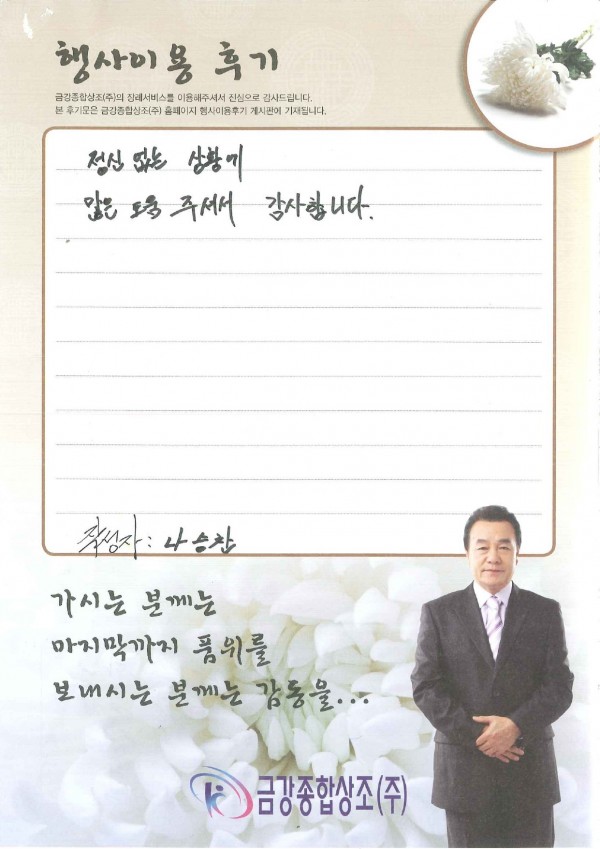 행사이용 후기
금강종합상조(주)의 장례서비스를 이용해주셔서 진심으로 감사드립니다.
본 후기문은 금강종합상조(주) 홈페이지 행사이용후기 게시판에 기재됩니다.
정신 없는 상황에
많은 도움 주셔서 감사합니다.
작성자 : 나승찬
가시는 분께는
마지막까지 품위를
보내시는 분께는 감동을...
금강종합상조(주)